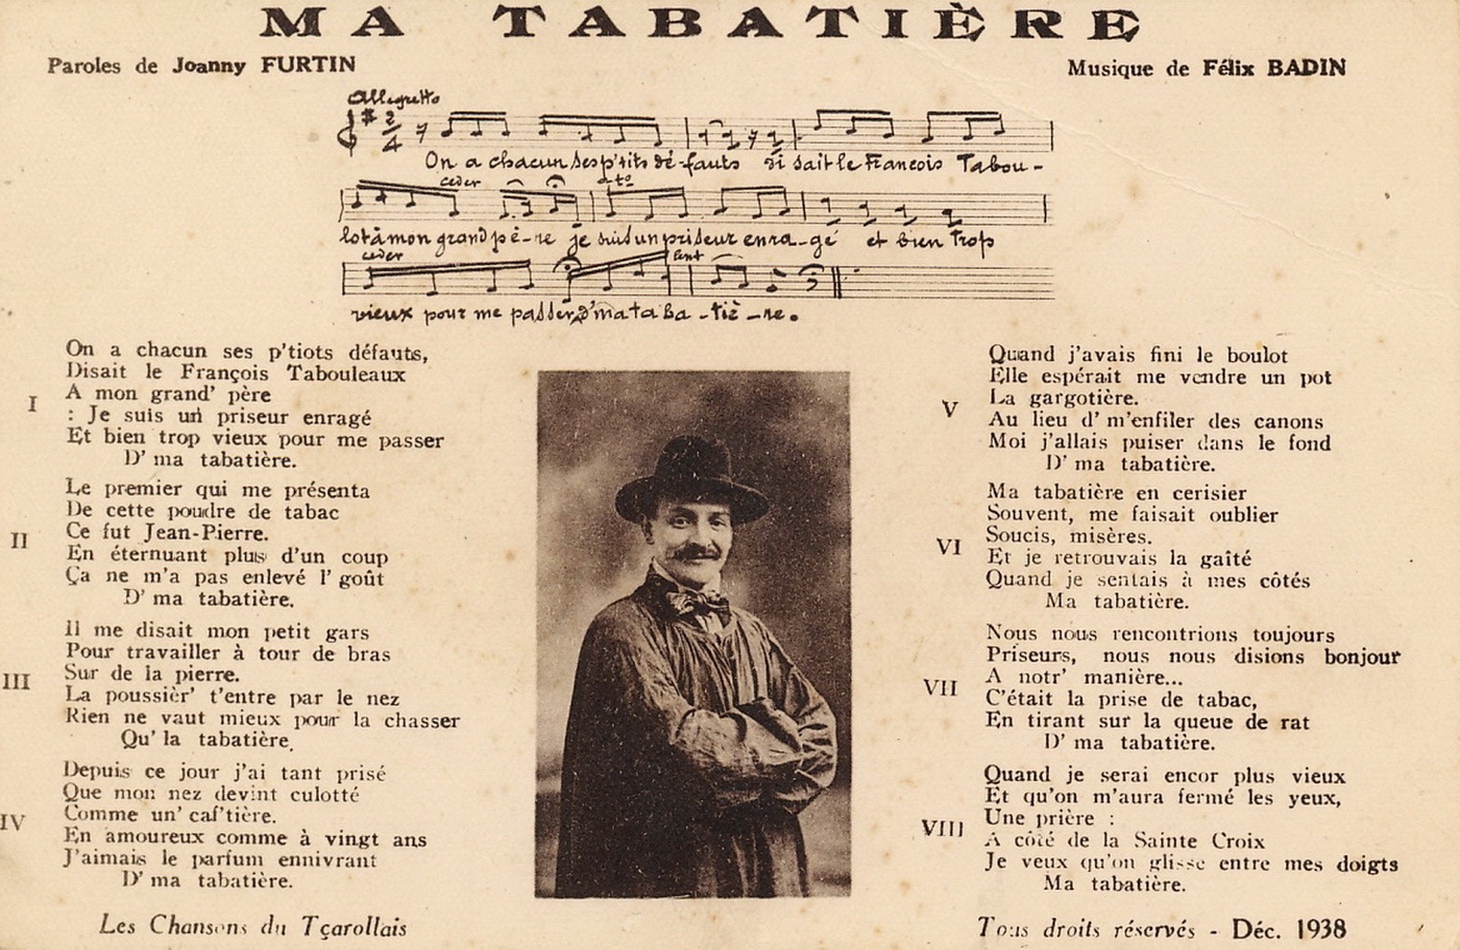 MA TABATIÈRE
Paroles de Joanny FURTIN
Musique de Félix BADIN
Allegretto
2/4
On a chacun ses p'tits dé-fauts di sait le Francois Tabou-
ceder a to
lot à mon grand pè-re je suis un priseur enra-gé et bien trop
ceder lent
vieux pour me passer d'ma ta ba-tiè-re.
I
On a chacun ses p'tiots défauts,
Disait le François Tabouleaux
A mon grand' père
: Je suis un priseur enragé
Et bien trop vieux pour me passer
D' ma tabatière.
II
Le premier qui me présenta
De cette poudre de tabac
Ce fut Jean-Pierre.
En éternuant plus d'un coup
Ça ne m'a pas enlevé l' goût
D' ma tabatière.
III
Il me disait mon petit gars
Pour travailler à tour de bras
Sur de la pierre.
La poussièr' t'entre par le nez
Rien ne vaut mieux pour la chasser
Qu' la tabatière.
IV
Depuis ce jour j'ai tant prisé
Que mon nez devint culotté
Comme un' caf'tière.
En amoureux comme à vingt ans
J'aimais le parfum ennivrant
D' ma tabatière.
V
Quand j'avais fini le boulot
Elle espérait me vendre un pot
La gargotière.
Au lieu d' m'enfiler des canons
Moi j'allais puiser dans le fond
D' ma tabatière.
VI
Ma tabatière en cerisier
Souvent, me faisait oublier
Soucis, misères.
Et je retrouvais la gaîté
Quand je sentais à mes côtés
Ma tabatière.
VII
Nous nous rencontrions toujours
Priseurs, nous nous disions bonjour
A notr' manière...
C'était la prise de tabac,
En tirant sur la queue de rat
D' ma tabatière.
VIII
Quand je serai encor plus vieux
Et qu'on m'aura fermé les yeux,
Une prière :
A côté de la Sainte Croix
Je veux qu'on glisse entre mes doigts
Ma tabatière.
Les Chansons du Tçarollais
Tous droits réservés - Déc. 1938